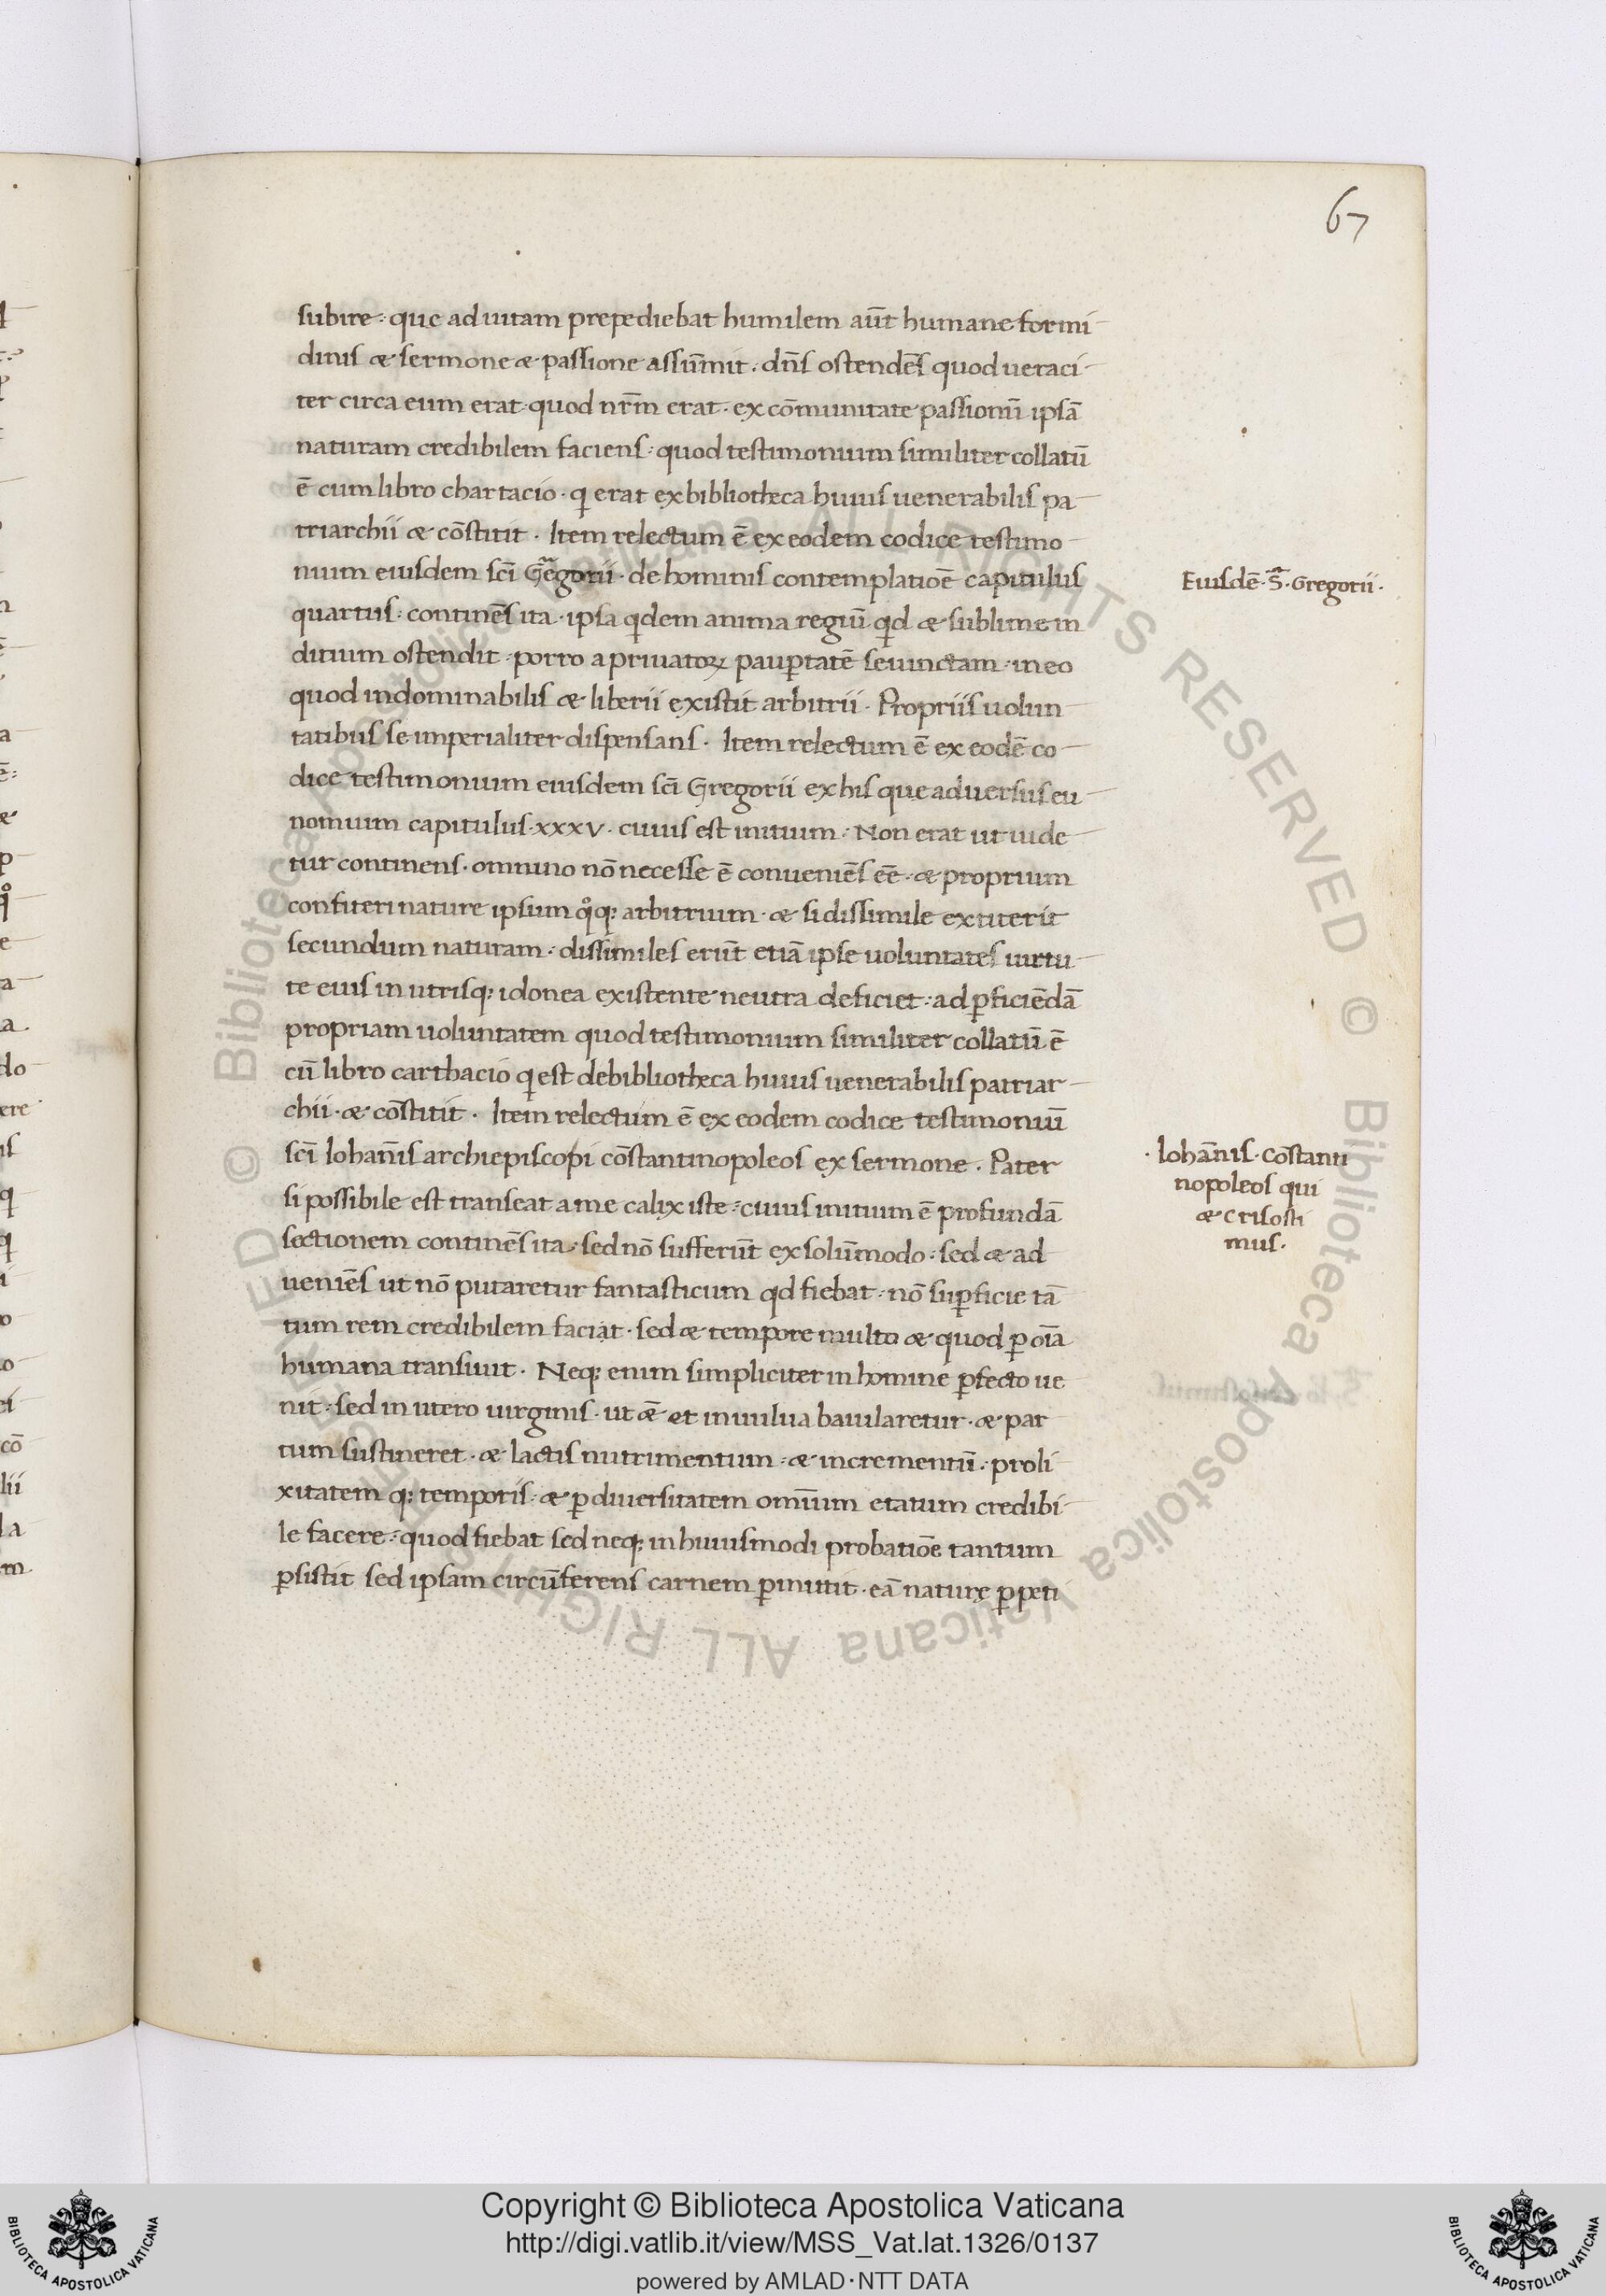 67
subire : que ad uitam prepediebat humilem aūt humane formi
dinis & sermone & passione assūmit . dn̄s ostendēs quod ueraci
ter circa eum erat quod nr̄m erat . ex cōmunitate passionū ipsā
naturam credibilem faciens : quod testimonium similiter collatū
ē cum libro chartacio . q erat ex bibliotheca huius uenerabilis pa
triarchii & cōstitit . Item relectum ē ex eodem codice testimo
nium eiusdem sc̄i Gregorii . de hominis contemplatiōe capitulus
quartus : continēs ita . ipsa qdem anima regiū qd & sublime in
ditium ostendit . porro a priuatoꝝ pauꝑtatē seiunctam . in eo
quod indominabilis & liberii existit arbitrii . Propriis uolun
tatibus se imperialiter dispensans . Item relectum ē ex eodē co
dice testimonium eiusdem sc̄i Gregorii ex his que aduersus eu
nomium capitulus . xxxv . cuius est initium . Non erat ut uide
tur continens . omnino nō necesse ē conueniēs eē . & proprium
confiteri nature ipsium qͦq; arbitrium . & si dissimile extiterit
secundum naturam . dissimiles erūt etiā ipse uoluntates uirtu
te eius in utrisq; idonea existente neutra deficiet . ad ꝑficiēdā
propriam uoluntatem quod testimonium similiter collatū ē
cū libro carthacio q est de bibliotheca huius uenerabilis patriar
chii . & cōstitit . Item relectum ē ex eodem codice testimoniū
sc̄i Iohan̄is archiepiscopi cōstantinopoleos ex sermone . Pater
si possibile est transeat a me calix iste : cuius initium ē profundā
sectionem continēs ita : sed nō sufferūt ex solūmodo : sed & ad
ueniēs ut nō putaretur fantasticum qd fiebat . nō suꝑficie tā
tum rem credibilem faciat . sed & tempore multo & quod ꝑ oīa
humana transiuit . Neq; enim simpliciter in homine ꝑfecto ue
nit . sed in utero uirginis . ut &̄ et in uulua baiularetur . & par
tum sustineret . & lactis nutrimentum . & incrementū . proli
xitatem q; temporis . & ꝑ diuersitatem omīum etatum credibi
le facere : quod fiebat sed neq; in huiusmodi probatiōe tantum
ꝑsistit sed ipsam circūferens carnem ꝑmittit . eā naturę ꝑpeti
Eiusdē . S̄ . Gregorii .
. Iohān̄is . Cōstanti
nopoleos qui
& Crisosti
mus .
© Biblioteca Apostolica Vaticana ALL RIGHTS RESERVED
© Biblioteca Apostolica Vaticana ALL RIGHTS RESERVED
Copyright © Biblioteca Apostolica Vaticana
http://digi.vatlib.it/view/MSS_Vat.lat.1326/0137
powered by AMLAD · NTT DATA
BIBLIOTECA APOSTOLICA VATICANA
BIBLIOTECA APOSTOLICA VATICANA